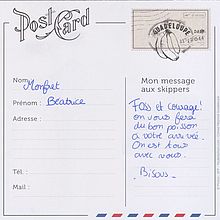 Post Card
GUADELOUPE
Nom:
Monfret
Prénom: Béatrice
Adresse:
Tél.:
Mail:
Mon message
aux skippers
Foss et courage!
on vous fera
du bon poisson
à votre arrivée.
On est tous
avec vous.
Bisous.